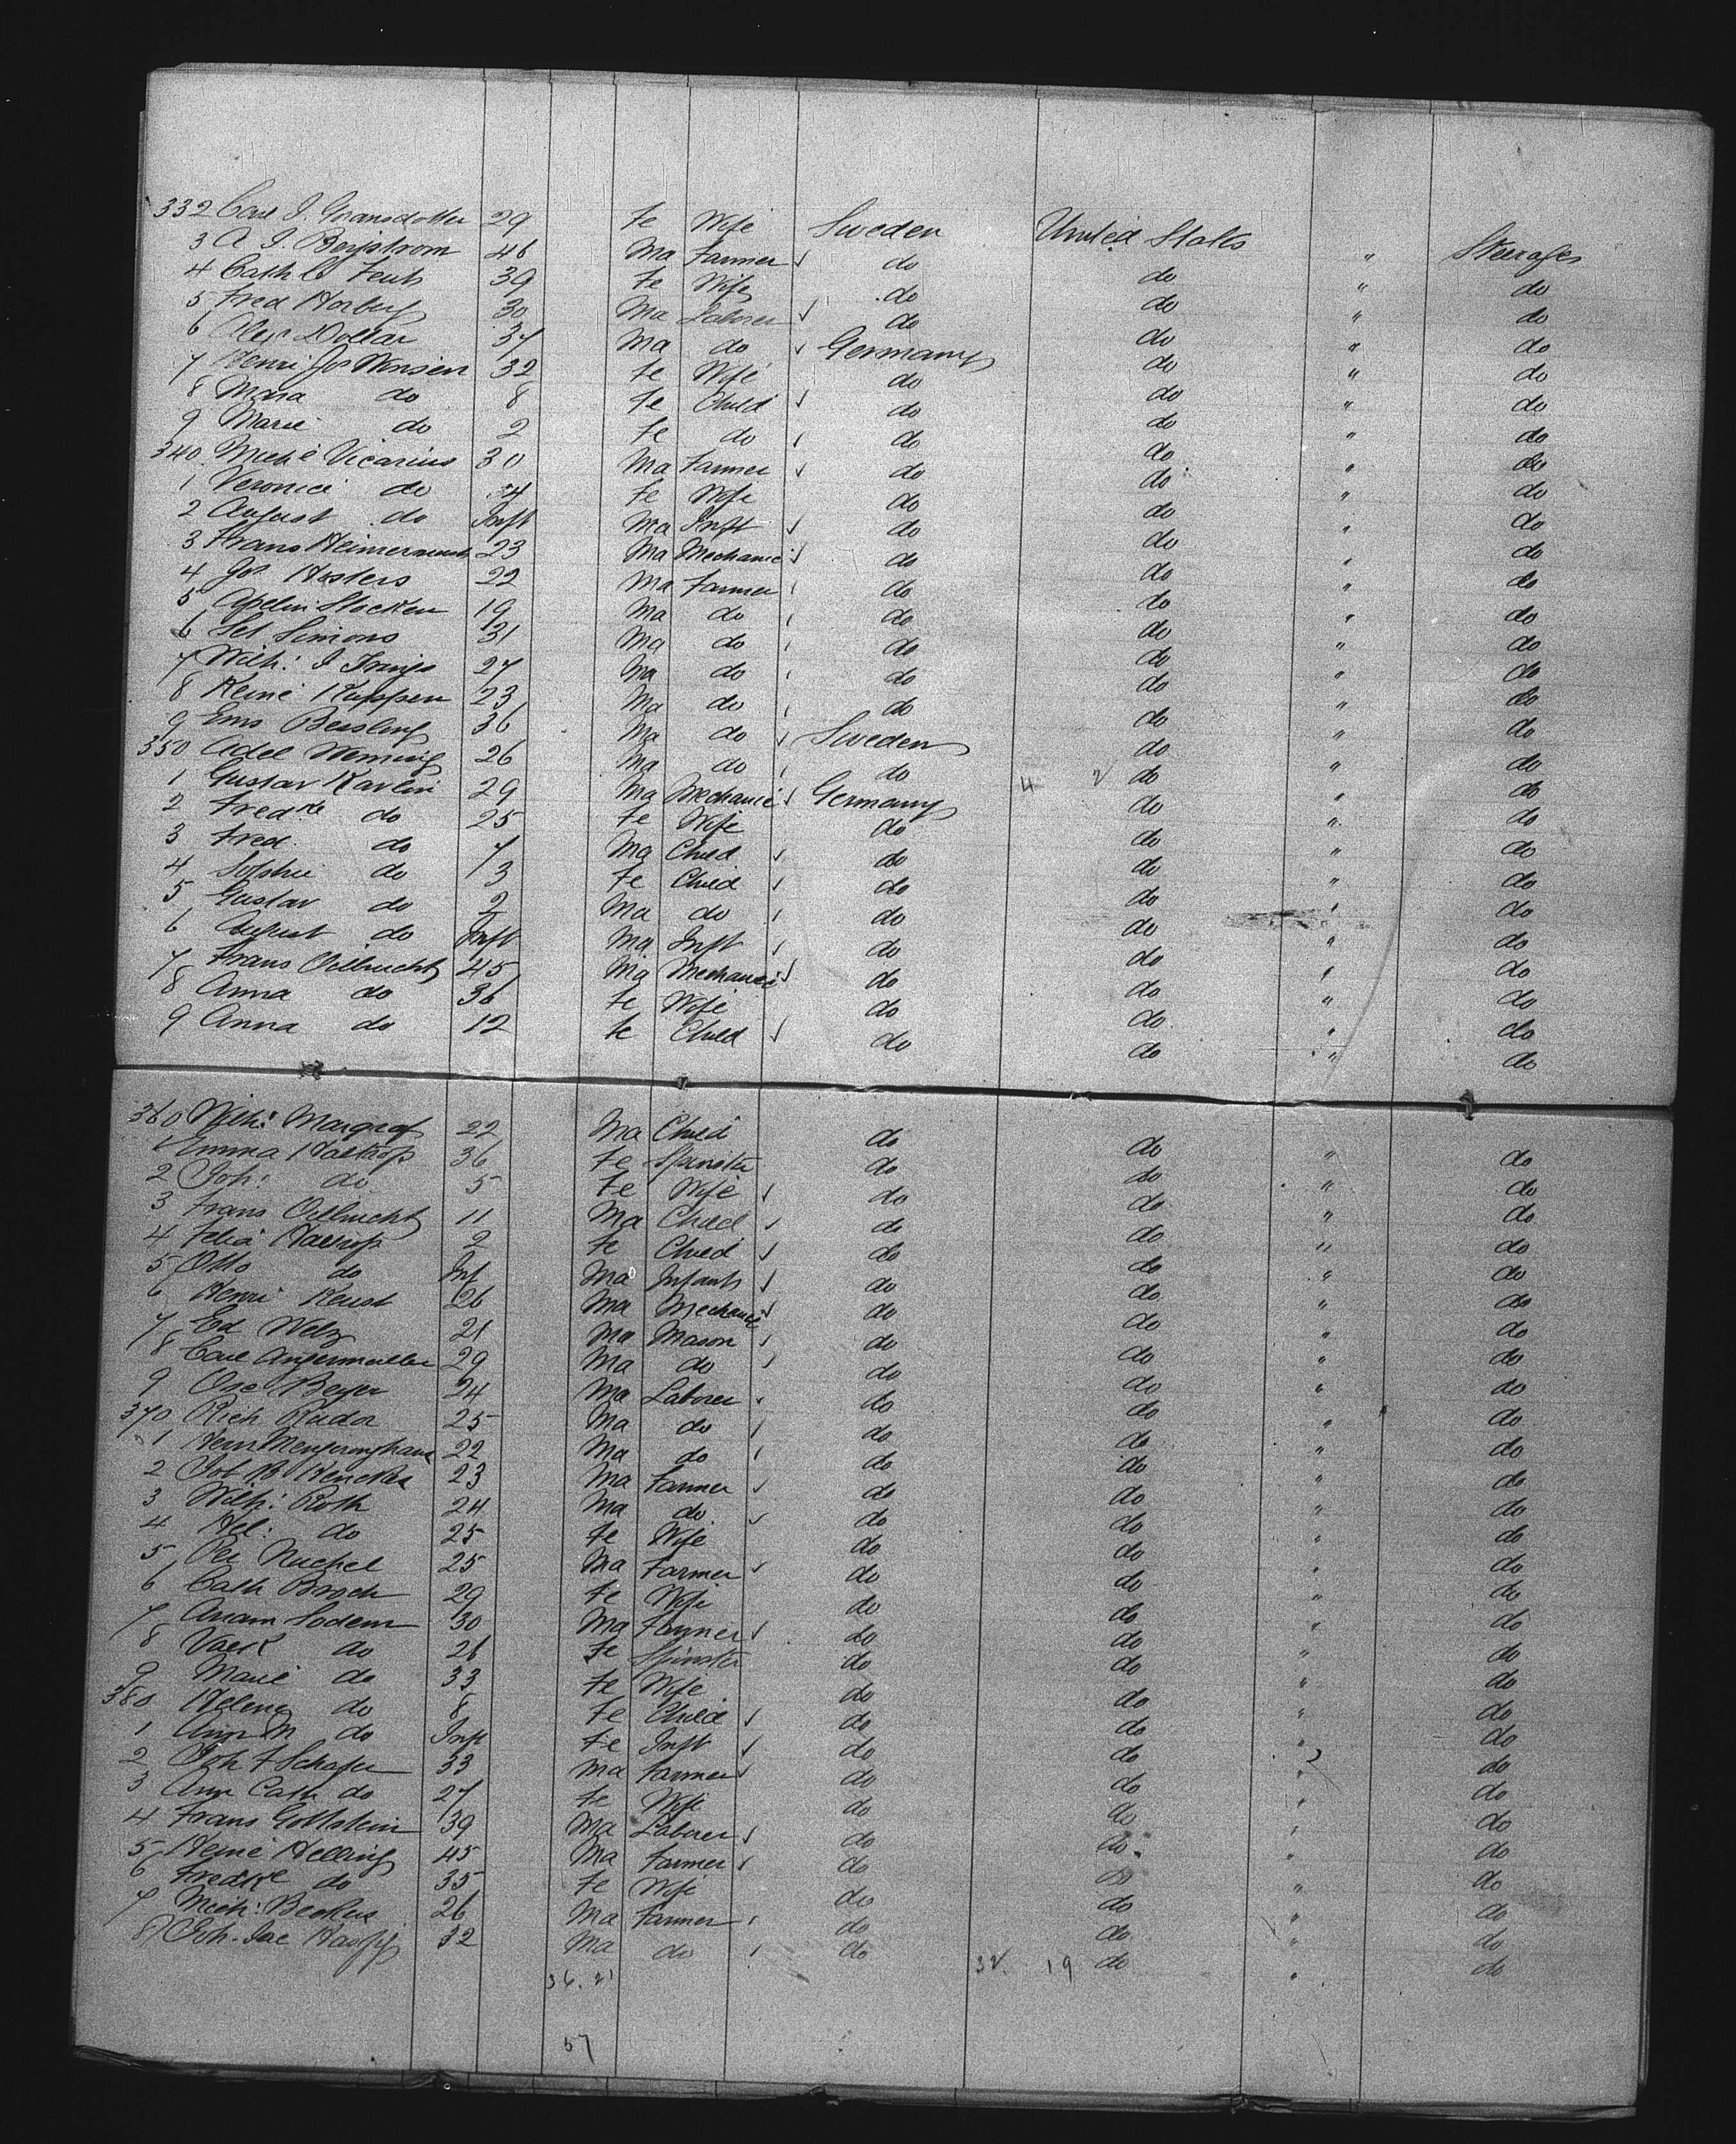 332 Carl J. Goransdotter 29 Fe Wife Sweden United States " Steerage
3 A J. Bergstrom 46 Ma Farmer do do " do
4 Cath C 39 Fe Wife do do " do
5 Fred Norberg 30 Ma Laborer do do " do
6 Alex Dollar 37 Ma do Germany do " do
7 Henri Jos Wensien 32 Fe Wife do do " do
8 Maria do 8 Fe Child do do " do
9 Marie do 2 Fe do do do " do
340 Vicarius 30 Ma Farmer do do " do
1 Veronica do 24 Fe Wife do do " do
2 August do Inft Ma Inft do do " do
3 Frans 23 Ma Mechanic do do " do
4 Jos Hosters 22 Ma Farmer do do " do
5 Stocken 19 Ma do do do " do
6 Set Simons 31 Ma do do do " do
7 Wilh: J 27 Ma do do do " do
8 Heini Kuppen 23 Ma do do do " do
9 Ens Bessling 36 Ma do Sweden do " do
350 Adel Wenning 26 Ma do do 4 2 do " do
1 Gustav Karlin 29 Ma Mechanic Germany do " do
2 Fredke do 25 Fe Wife do do " do
3 Fred. do 7 Ma Child do do " do
4 Sophie do 3 Fe Child do do " do
5 Gustav do 2 Ma do do do " do
6 August do Inft Ma Inft do do " do
7 Frans Oelbrucht 45 Ma Mechanic do do " do
8 Anna do 36 Fe Wife do do " do
9 Anna do 12 Fe Child do do " do
360 Wilh: Margraf 22 Ma Child do do " do
1 Emma Haltrop 36 Fe Spinster do do " do
2 Joh: do 5 Fe Wife do do " do
3 Frans Oelbrucht 11 Ma Child do do " do
4 Felia Haltrop 2 Fe Child do do " do
5 Otto do Inf Ma Infant do do " do
6 Henri Keust 26 Ma Mechanic do do " do
7 Ed Welz 21 Ma Mason do do " do
8 Carl Angermuller 29 Ma do do do " do
9 Osc Beyer 24 Ma Laborer do do " do
370 Rich Rudor 25 Ma do do do " do
1 Herm Mengeringhaus 22 Ma do do do " do
2 Job B Henckes 23 Ma Farmer do do " do
3 Wilh: Roth 24 Ma do do do " do
4 Hel: do 25 Fe Wife do do " do
5 Pet Nuchel 25 Ma Farmer do do " do
6 Cath Broch 29 Fe Wife do do " do
7 Adam Sodem 30 Ma Farmer do do " do
8 do 26 Fe Spinster do do " do
9 Marie do 33 Fe Wife do do " do
380 Helena do 8 Fe Child do do " do
1 Ann M do Inft Fe Inft do do " do
2 Joh F Schafer 33 Ma Farmer do do " do
3 Ann Cath do 27 Fe Wife do do " do
4 Frans Gottstein 39 Ma Laborer do do " do
5 Heine Helling 45 Ma Farmer do do " do
6 Fredke do 35 Fe Wife do do " do
7 Mich: Beckus 26 Ma Farmer do do " do
8 Joh. Jac 32 Ma do do 32 19 do " do
36. 21
57